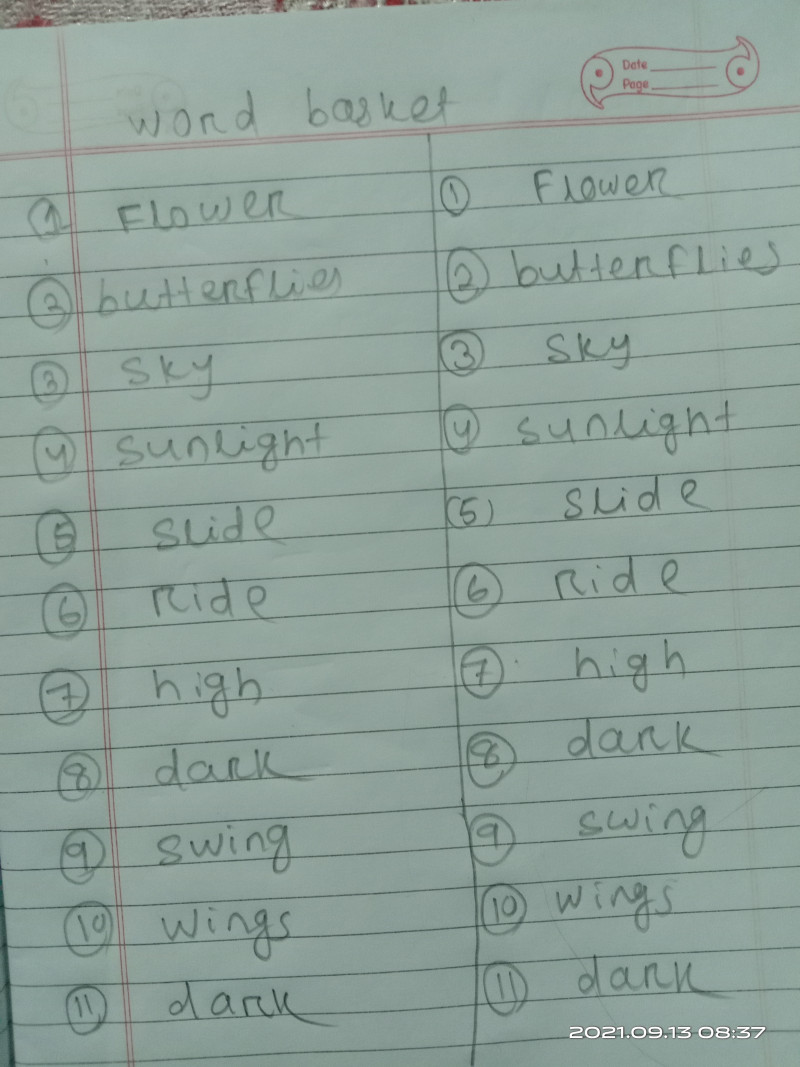 Date
Page
word basket
① Flower ① Flower
③ butterflies ② butterflies
③ sky ③ sky
④ sunlight ④ sunlight
⑤ slide (5) slide
⑥ Ride ⑥ Ride
⑦ high ⑦ high
⑧ dark ⑧ dark
⑨ swing ⑨ swing
⑩ wings ⑩ wings
⑪ dark ⑪ dark
2021.09.13 08:37